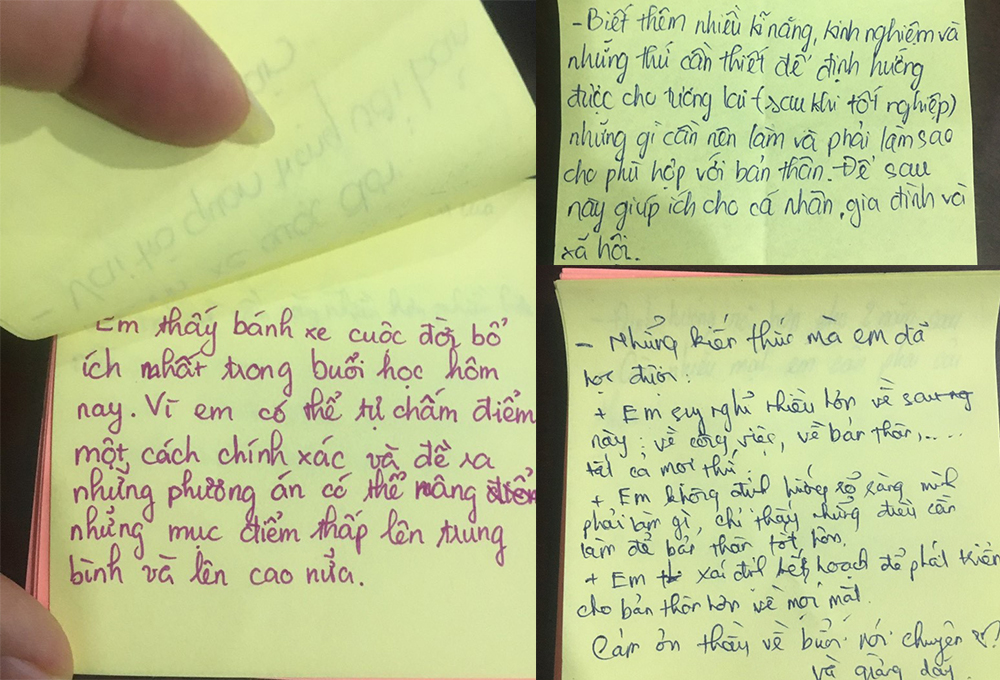 Em thấy bánh xe cuôc đời bổ
ích nhất trong buổi học hôm
nay. Vì em có thể tự chấm điểm
một cách chính xác và đề ra
những phương án có thể nâng điểm
những mục điểm thấp lên trung
bình và lên cao nửa.
- Biết thêm nhiều kĩ năng, kinh nghiệm và
những thứ cần thiết để định hướng
được cho tương lai (sau khi tốt nghiệp)
những gì cần nên làm và phải làm sao
cho phù hợp với bản thân. Để sau
này giúp ích cho cá nhân, gia đình và
xã hội.
- Những kiến thức mà em đã
học được:
+ Em suy nghĩ nhiều hơn về sau
này: về công việc, về bản thân,.....
tất cả mọi thứ.
+ Em không định hướng rõ ràng mình
phải làm gì, chỉ thấy những điều cần
làm để bản thân tốt hơn.
+ Em xác định kế hoạch để phát triển
cho bản thân hơn về mọi mặt.
Cảm ơn thầy về buổi nói chuyện
và giảng dạy.